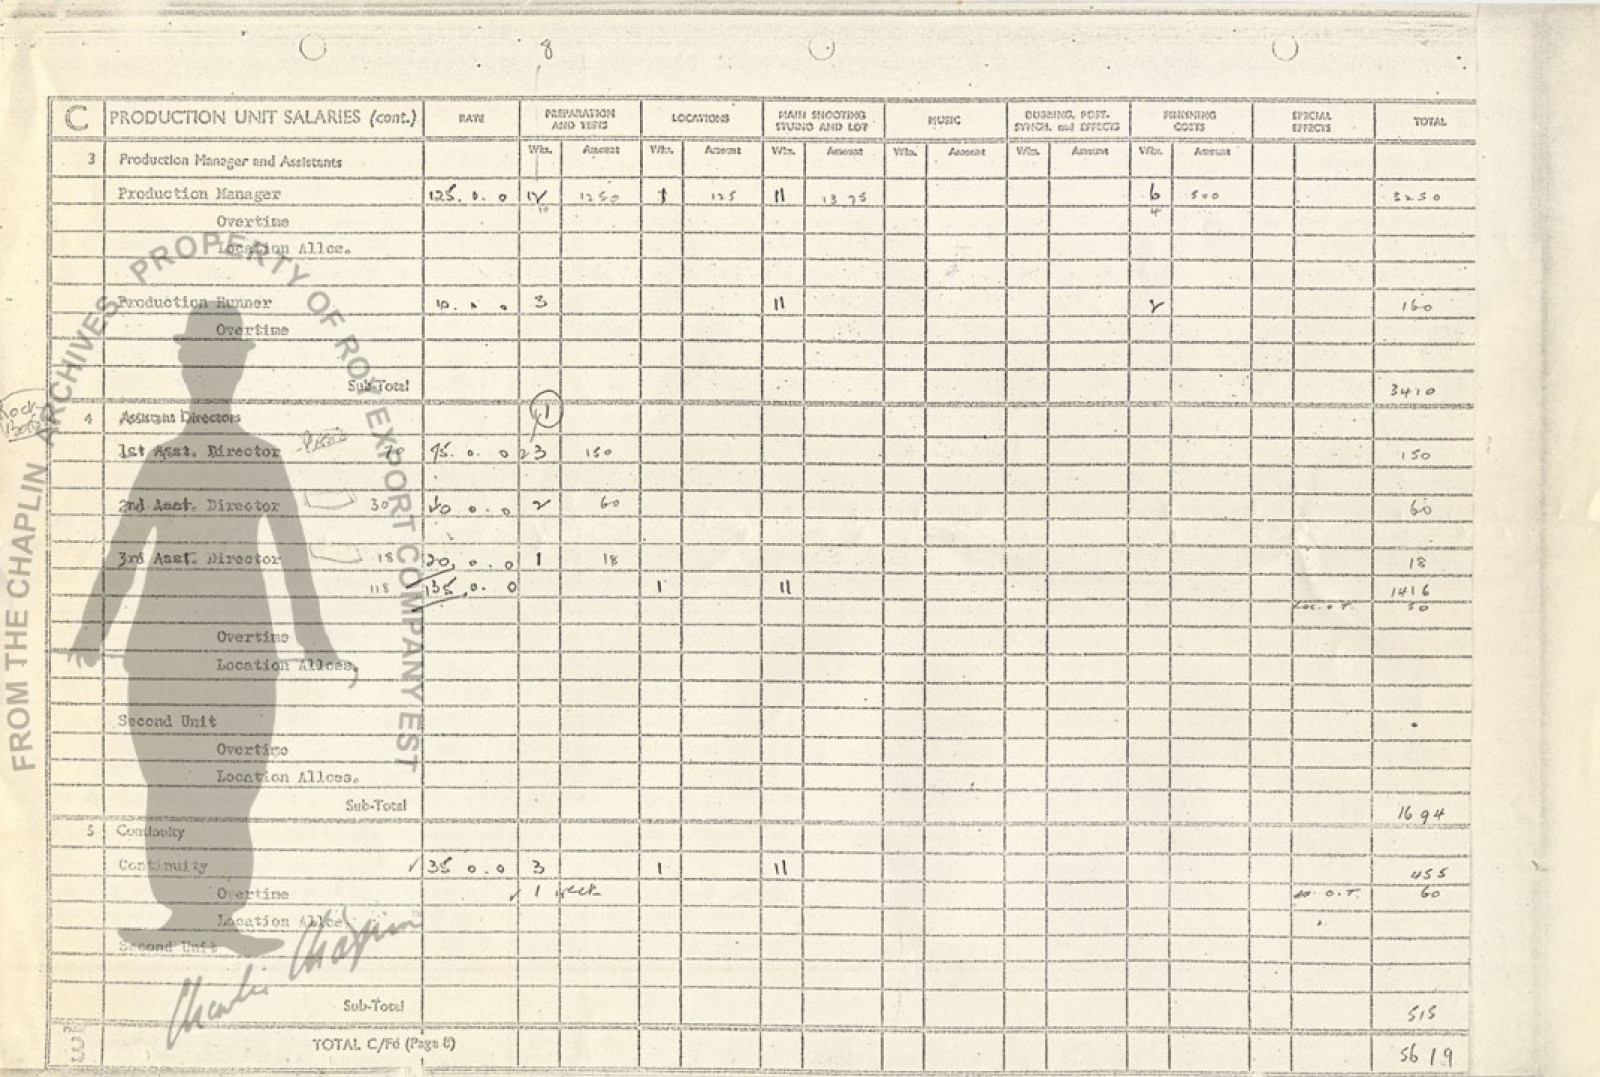 8
C PRODUCTION UNIT SALARIES (cont.) RATE PREPARATION AND TESTS LOCATIONS MAIN SHOOTING STUDIO AND LOT MUSIC DUBBING, POST-SYNCH. and EFFECTS FINISHING COSTS SPECIAL EFFECTS TOTAL
3 Production Manager and Assistants Wks. Amount Wks. Amount Wks. Amount Wks. Amount Wks. Amount Wks. Amount
Production Manager 125. 0. 0 12 1250 1 125 11 1375 6 500 3250
10 4
Overtime
Location Allce.
Production Runner 10. 3 11 2 160
Overtime
Sub-Total 3410
Rock
4 Assistant Directors 1
1st Asst. Director 75. 0. 0 2 3 150 150
2nd Asst. Director 30 40 0. 0 2 60 60
3rd Asst. Director 18 20. 0. 0 1 18 18
118 135. 0. 0 1 11 1416
O.T. 50
Overtime
Location Allces.
Second Unit
Overtime
Location Allces.
Sub-Total 1694
5 Continuity
Continuity 35 0. 0 3 1 11 455
Overtime 1 week O.T. 60
Location Allce.
Second Unit
Sub-Total 515
TOTAL C/Fd (Page 8) 5619
FROM THE CHAPLIN ARCHIVES. PROPERTY OF ROY EXPORT COMPANY EST
Charlie Chaplin